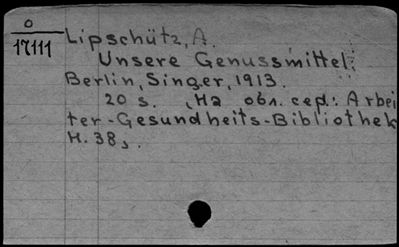 O
17111
Lipschütz, A.
Unsere Genussmittel.
Berlin, Singer, 1913.
20 s. (На обл. сер.: Arbei
ter-Gesundheits-Bibliothek
H. 38).